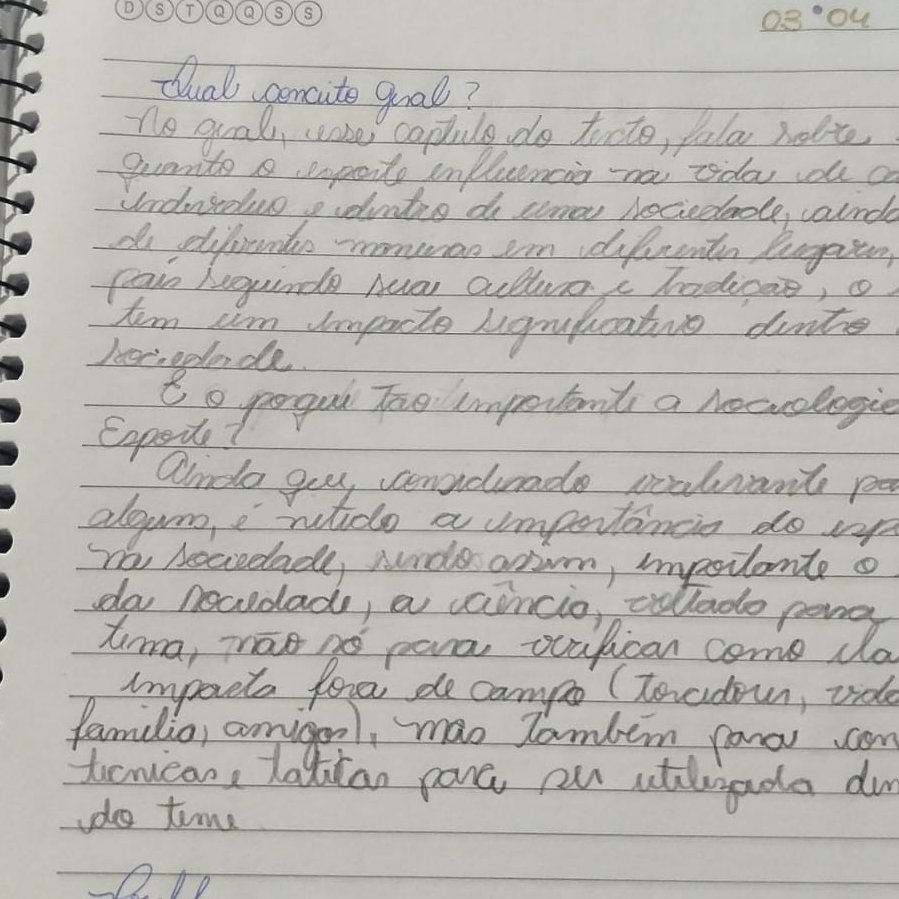 D S T Q Q S S
03 04
Qual conceito geral?
No geral, esse capitulo do texto, fala sobre
quanto o esporte influencia na vida de ca
individuo e dentro de uma sociedade, ainda
de diferentes maneiras em diferentes lugares,
pais seguindo sua cultura e Tradição, o
tem um impacto significativo dentro
sociedade.
E o porquê Tão importante a sociologia
Esporte?
Ainda que, considerado irrelevante pa
alguns, é nitido a importância do esp
na sociedade, sendo assim, importante o
da sociedade, a ciência, voltado para
tema, não só para verificar como ela
impacta fora de campo (Torcedores, vida
familia, amigos), mas Também para con
tecnicas e Taticas para ser utilizada den
do time